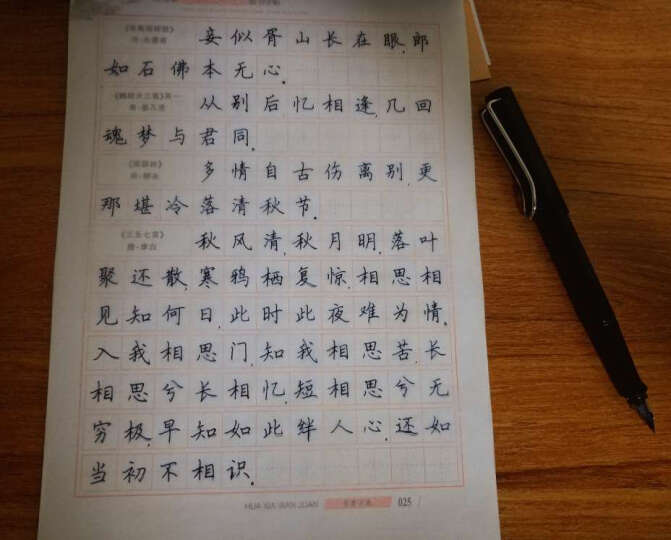 妾似胥山长在眼,郎
如石佛本无心.
从别后,忆相逢,几回
魂梦与君同.
多情自古伤离别,更
那堪冷落清秋节.
《三五七言》
唐·李白
秋风清,秋月明,落叶
聚还散,寒鸦栖复惊.相思相
见知何日,此时此夜难为情.
入我相思门,知我相思苦.长
相思兮长相忆,短相思兮无
穷极.早知如此绊人心,还如
当初不相识.
HUA XIA WAN JUAN
025